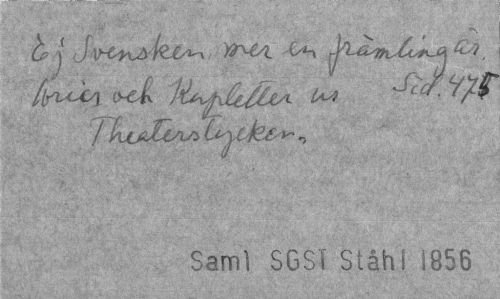 Ej Svensken mer en främling är.
Arier och Kupletter ur Sid. 475
Theaterstycken.
Saml SGST Ståhl 1856